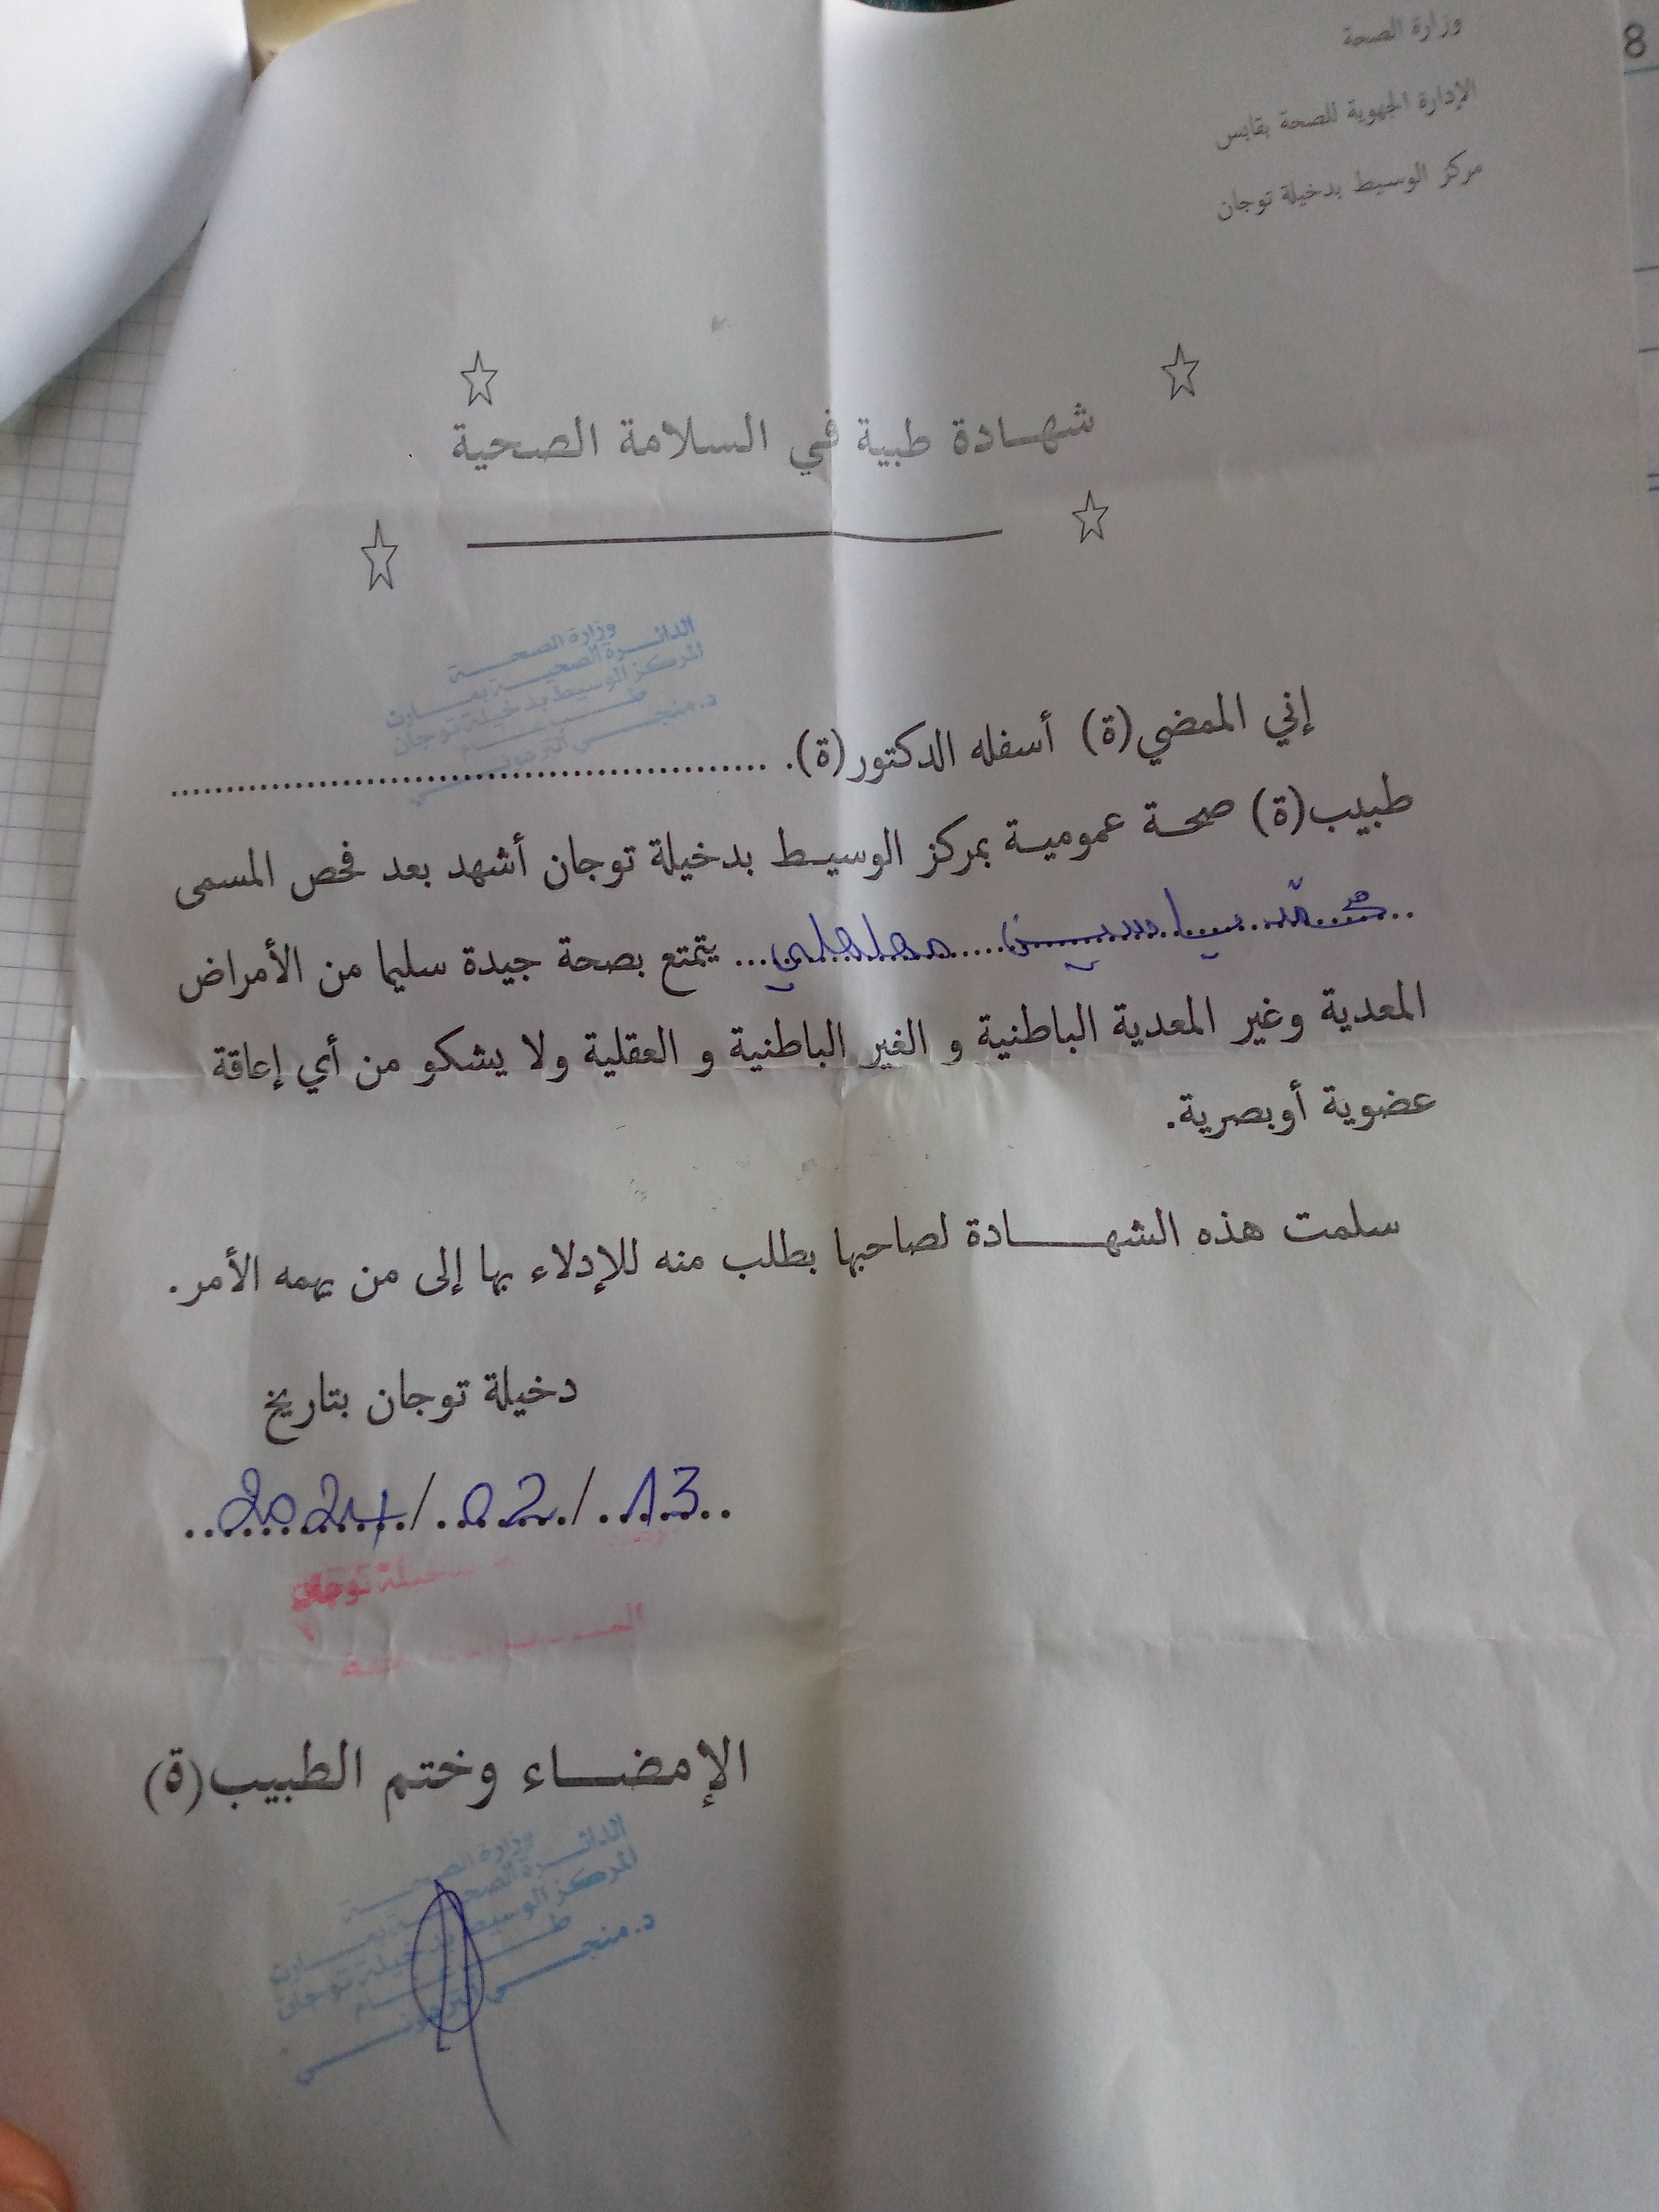 8
وزارة الصحة
الإدارة الجهوية للصحة بقابس
مركز الوسيط بدخيلة توجان
شهــادة طبية في السلامة الصحية
وزارة الصحــــة
الدائـــرة الصحيـــة بمـــارث
المركز الوسيط بدخيلة توجان
طـــب عـــام
د. منجـــي
إني الممضي(ة) أسفله الدكتور(ة). ........................................
طبيب(ة) صحة عمومية بمركز الوسيط بدخيلة توجان أشهد بعد فحص المسمى
..محمد ياسين .... معلملي... يتمتع بصحة جيدة سليما من الأمراض
المعدية وغير المعدية الباطنية و الغير الباطنية و العقلية ولا يشكو من أي إعاقة
عضوية أوبصرية.
سلمت هذه الشهـــــادة لصاحبها بطلب منه للإدلاء بها إلى من يهمه الأمر.
دخيلة توجان بتاريخ
..2024/.02./.13..
بدخيلة توجان
الإمضـــاء وختم الطبيب(ة)
وزارة الصحــــة
الدائـــرة الصحيـــة بمـــارث
المركز الوسيط بدخيلة توجان
طـــب عـــام
د. منجـــي